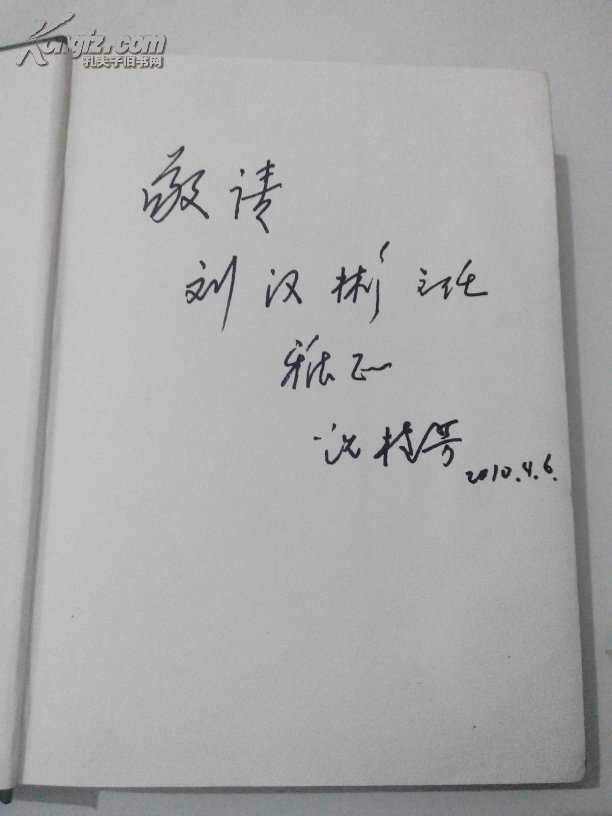 Kongfz.com
孔夫子旧书网
敬请
刘汉彬主任
雅正
沈
2010.4.6.